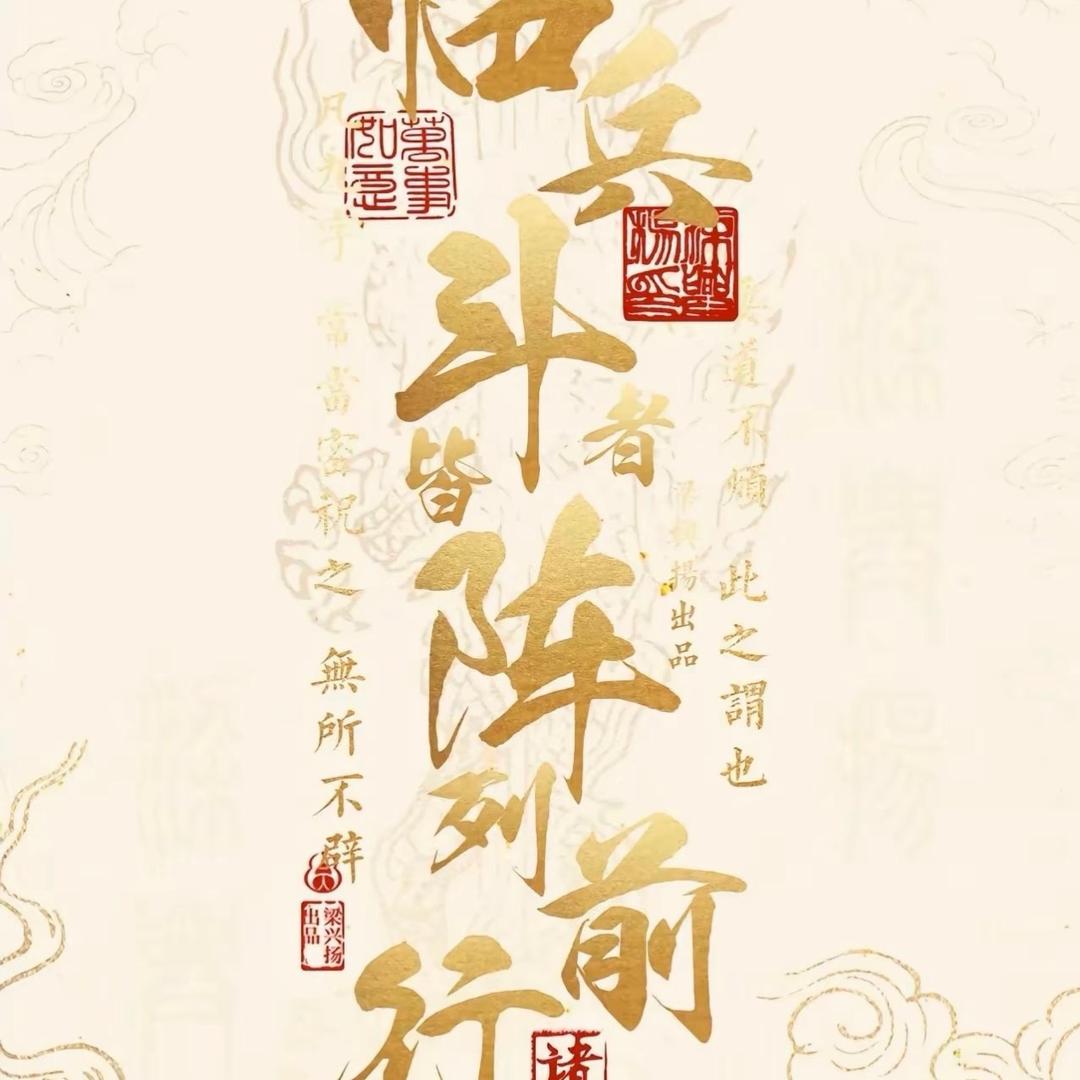 临兵
斗者
皆阵
列前
行
凡九字
常當密祝之
無所不辟
要道不煩
此之謂也
梁興揚出品
萬事如意
梁兴扬出品
諸